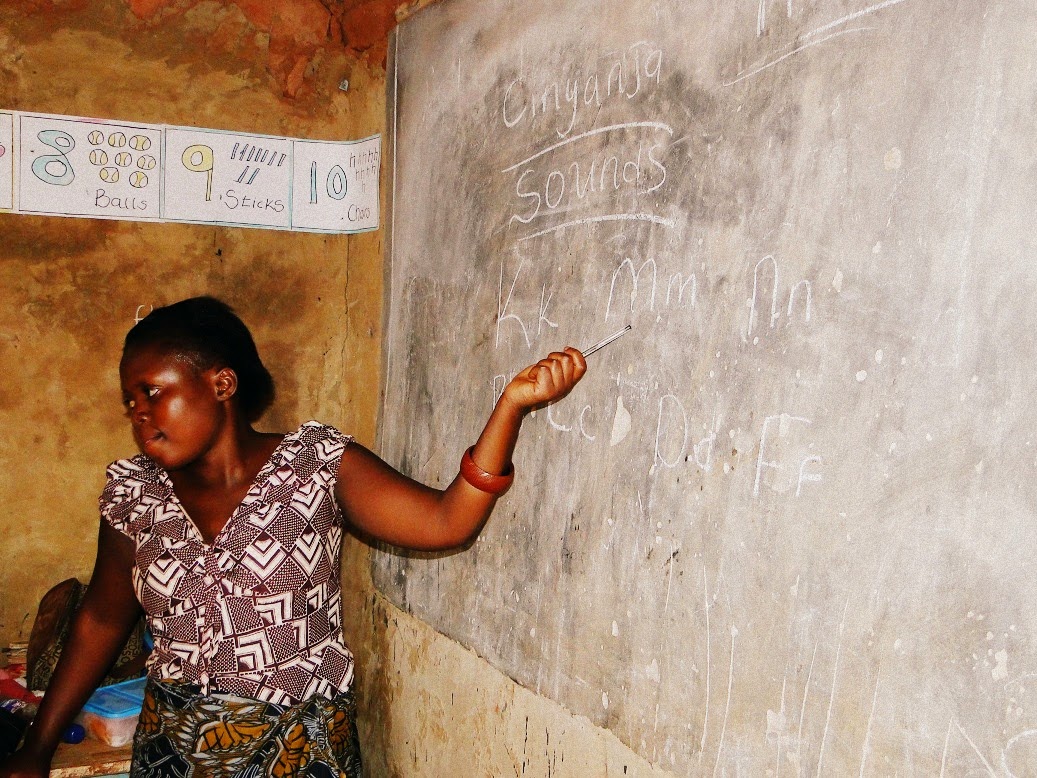 8 Balls 9 Sticks 10
Cinyanja
Sounds
Kk Mm An
Cc Dd Ff